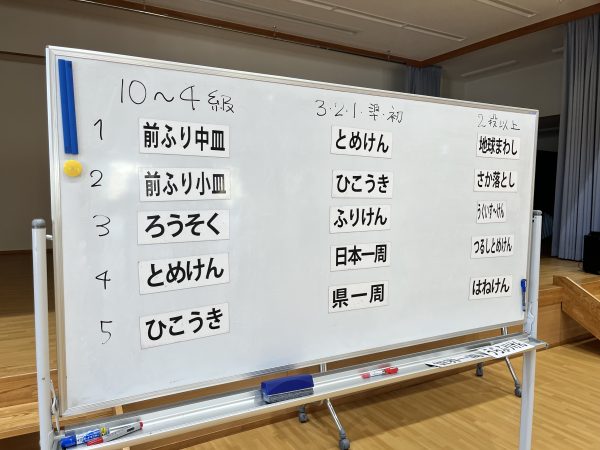 10～4級 3・2・1・準・初 2段以上
1 前ふり中皿 とめけん 地球まわし
2 前ふり小皿 ひこうき さか落とし
3 ろうそく ふりけん うぐいす〜けん
4 とめけん 日本一周 つるしとめけん
5 ひこうき 県一周 はねけん